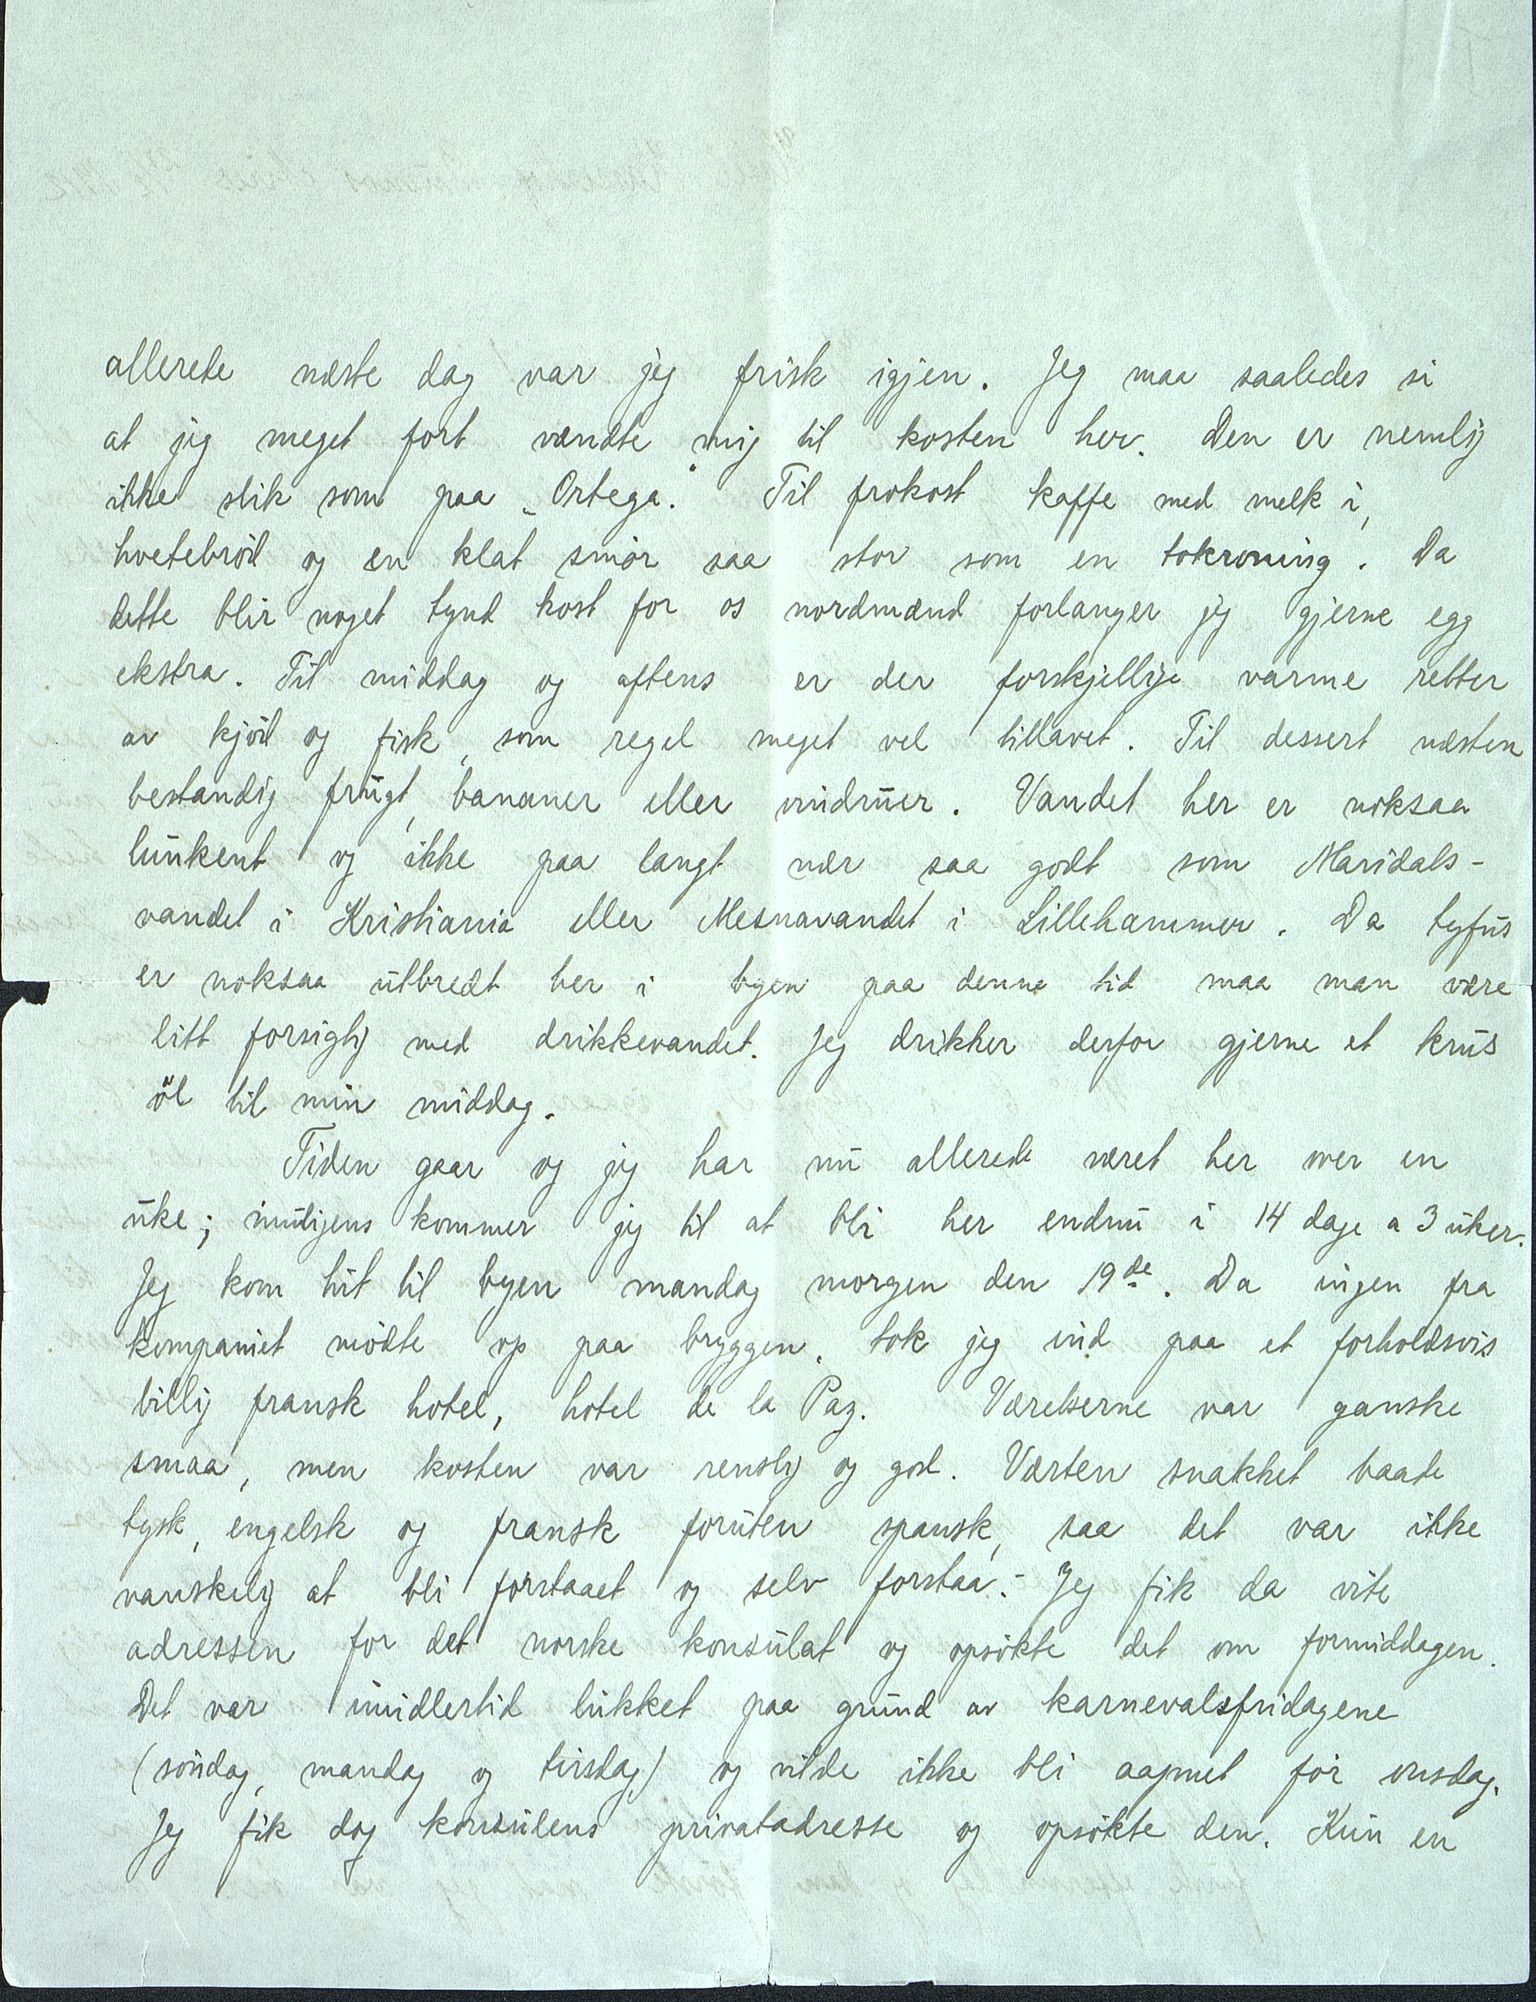 allerede næste dag var jeg frisk igjen. Jeg maa saaledes si
at jeg meget fort vændte mig til kosten her. Den er nemlig
ikke slik som paa „Ortega." Til frokost kaffe med melk i,
hvetebröd og en klat smör saa stor som en tokroning. Da
dette blir noget tynd kost for os nordmænd forlanger jeg gjerne egg
ekstra. Til middag og aftens er der forskjellige varme retter
av kjöd og fisk, som regel meget vel tillavet. Til dessert næsten
bestandig frugt, bananer eller vindruer. Vandet her er noksaa
lunkent og ikke paa langt nær saa godt som Maridals-
vandet i Kristiania eller Mesnavandet i Lillehammer. Da tyfus
er noksaa utbredt her i byen paa denne tid maa man være
litt forsigtig med drikkevandet. Jeg drikker derfor gjerne et krus
öl til min middag.
Tiden gaar og jeg har nu allerede været her over en
uke; muligens kommer jeg til at bli her endnu i 14 dage a 3 uker.
Jeg kom hit til byen mandag morgen den 19de. Da ingen fra
kompaniet mödte op paa bryggen, tok jeg ind paa et forholdsvis
billig fransk hotel, hotel de la Paz. Værelserne var ganske
smaa, men kosten var renslig og god. Værten snakket baade
tysk, engelsk og fransk foruten spansk, saa det var ikke
vanskelig at bli forstaaet og selv forstaa.- Jeg fik da vite
adressen for det norske konsulat og opsökte det om formiddagen.
Det var imidlertid lukket paa grund av karnevalsfridagene
(söndag, mandag og tirsdag) og vilde ikke bli aapnet för onsdag.
Jeg fik dog konsulens privatadresse og opsökte den. Kun en